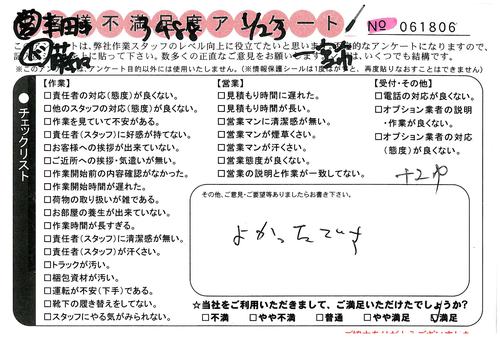 お客様不満足度アンケート
3488 1/23
No 061806
弊社作業スタッフのレベル向上に役立てたいと思います
数多くの正直なご意見をお願いします
いくつでも結構です。
(※このアンケートはアンケート目的以外には使用いたしません。)(※情報保護シールは1度はがすと、再度貼りなおすことはできません)
チェックリスト
【作業】
□責任者の対応(態度)が良くない。
□他のスタッフの対応(態度)が良くない。
□作業を見ていて不安がある。
□責任者(スタッフ)に好感が持てない。
□お客様への挨拶が出来ていない。
□ご近所への挨拶・気遣いが無い。
□作業開始前の内容確認がなかった。
□作業開始時間が遅れた。
□荷物の取り扱いが雑である。
□お部屋の養生が出来ていない。
□作業時間が長すぎる。
□責任者(スタッフ)に清潔感が無い。
□責任者(スタッフ)が汗くさい。
□トラックが汚い。
□梱包資材が汚い。
□運転が不安(下手)である。
□靴下の履き替えをしてない。
□スタッフにやる気がみられない。
【営業】
□見積もり時間に遅れた。
□見積もり時間が長い。
□営業マンに清潔感が無い。
□営業マンが煙草くさい。
□営業マンが汗くさい。
□営業態度が良くない。
□営業の説明と作業が一致してない。
【受付・その他】
□電話の対応が良くない。
□オプション業者の説明・作業が良くない。
□オプション業者の対応(態度)が良くない。
その他、ご意見・ご要望等ありましたらお書き下さい。
よかったです
☆当社をご利用いただきまして、ご満足いただけたでしょうか?
□不満 □やや不満 □普通 □やや満足 ☑満足